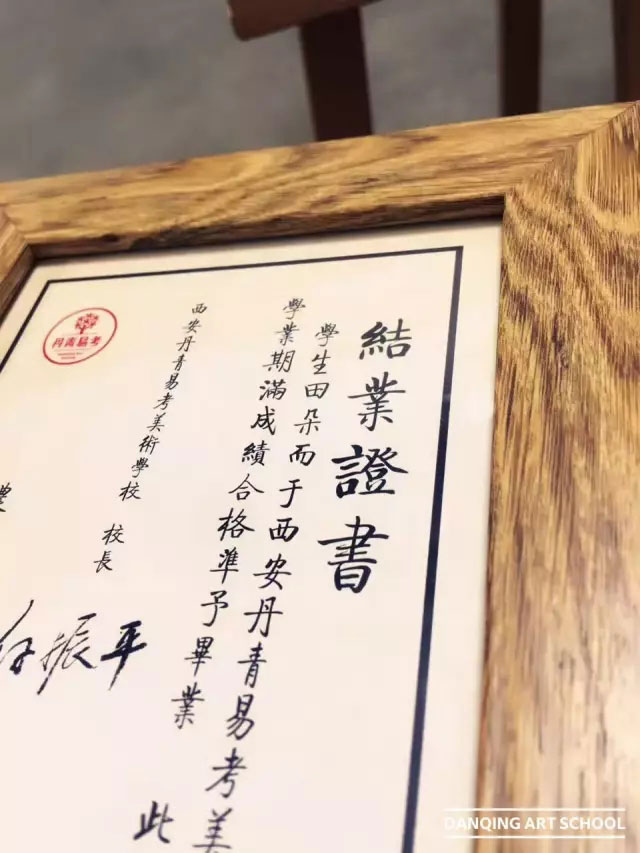 結業證書
學生田朵而于西安丹青易考美
學業期滿成績合格準予畢業
此
西安丹青易考美術學校 校長
振平
丹青易考
DANQING ART SCHOOL